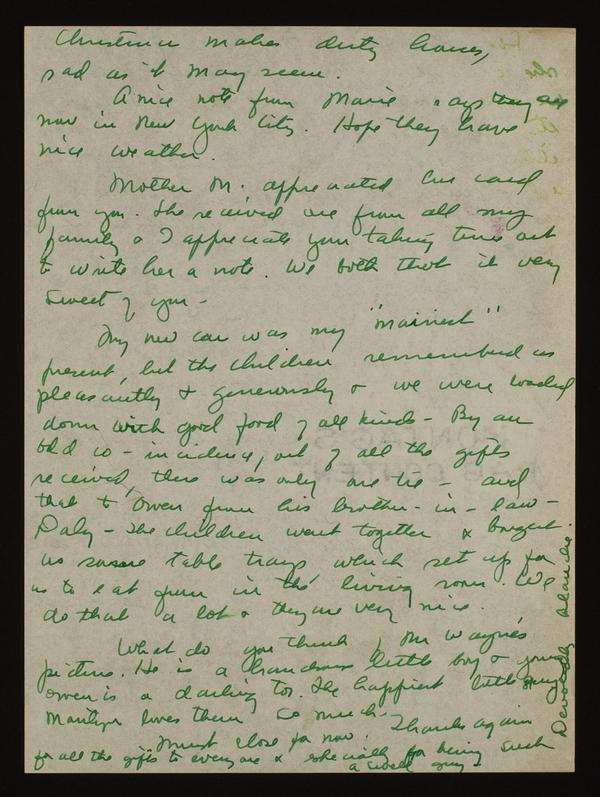 Christmas makes dirty houses,
sad as it may seem.
A nice note from Marie says they are
now in New York City. Hope they have
nice weather.
Mother M. appreciated the card
from you. She received one from all my
family & I appreciate your taking time out
to write her a note. We both that it very
sweet of you -
My new car was my "mainest"
present, but the children remembered us
pleasantly & generously & we were loaded
down with good food of all kinds - By an
odd co-incidence, out of all the gifts
received, there was only one tie - and
that to Owen from his brother-in-law -
Daly - The children went together & bought
us some table trays which set up for
us to eat from in the living room. We
do that a lot & they are very nice.
What do you think of Mr Wayne's
picture. He is a handsome little boy & young
Owen is a darling too. The happiest little guy
Marilyn loves them so much.
Must close for now. Thanks again
for all the gifts to everyone & especially for being such
a swell guy -
Devotedly Blanche